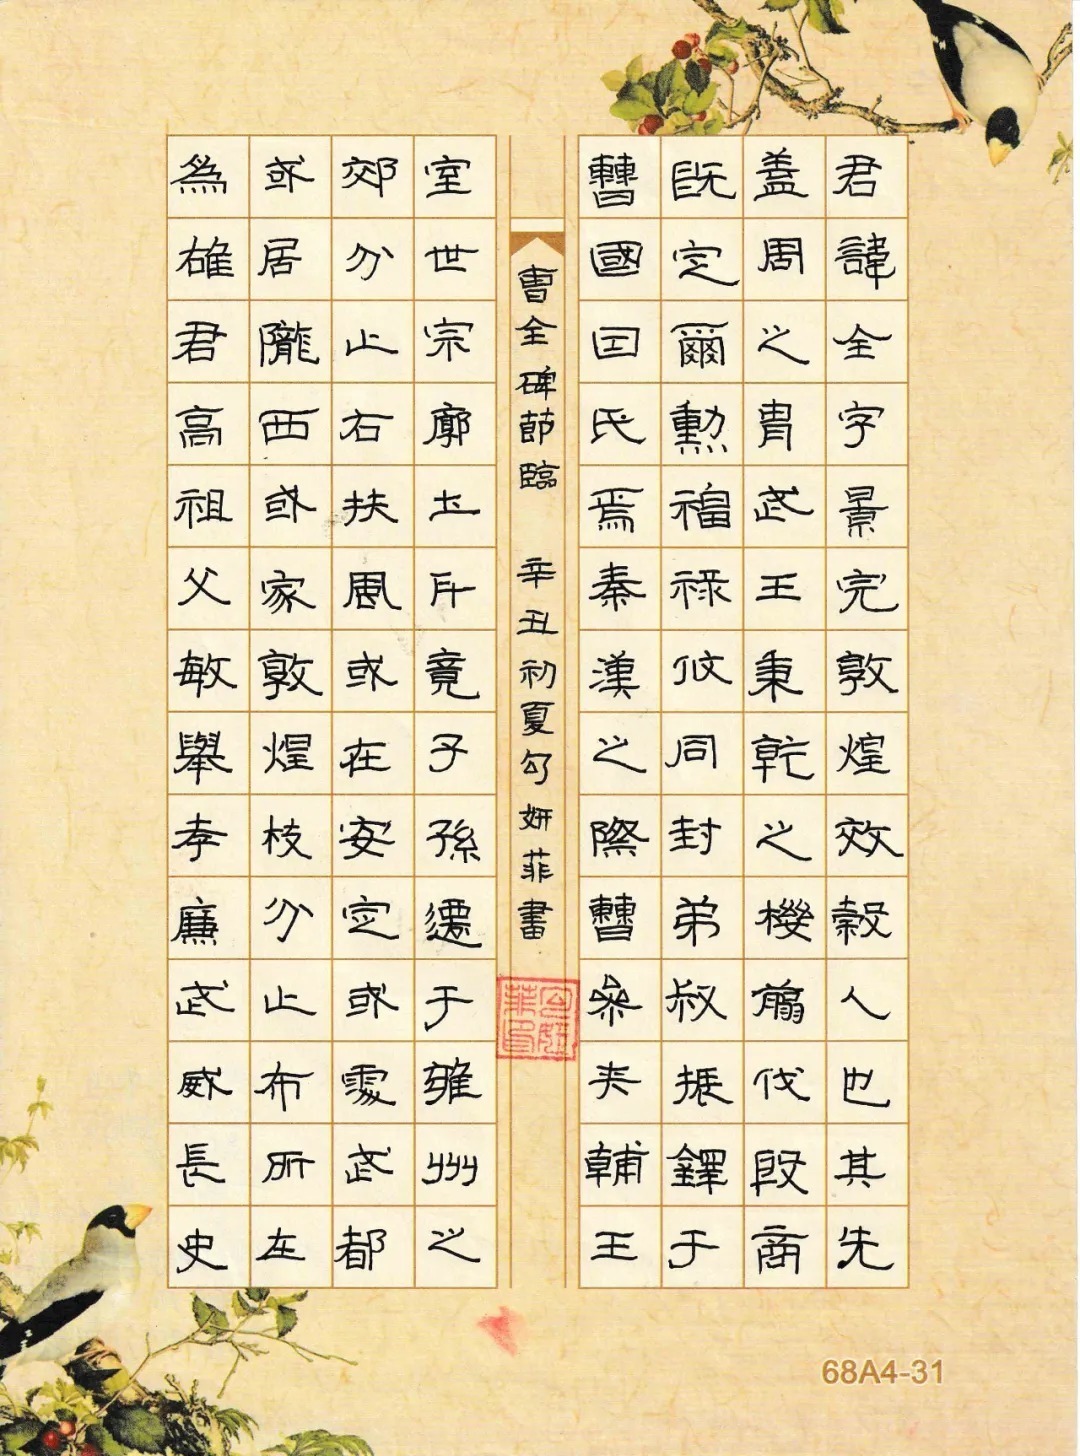 君諱全字景完敦煌效穀人也其先
蓋周之胄武王秉乾之機翦伐殷商
既定爾勲福祿攸同封弟叔振鐸于
曹國因氏焉秦漢之際曹參夾輔王
室世宗廓土斥竟子孫遷于雍州之
郊分止右扶風或在安定或處武都
或居隴西或家敦煌枝分止布所在
為雄君高祖父敏舉孝廉武威長史
曹全碑節臨 辛丑初夏勾妍菲書
68A4-31